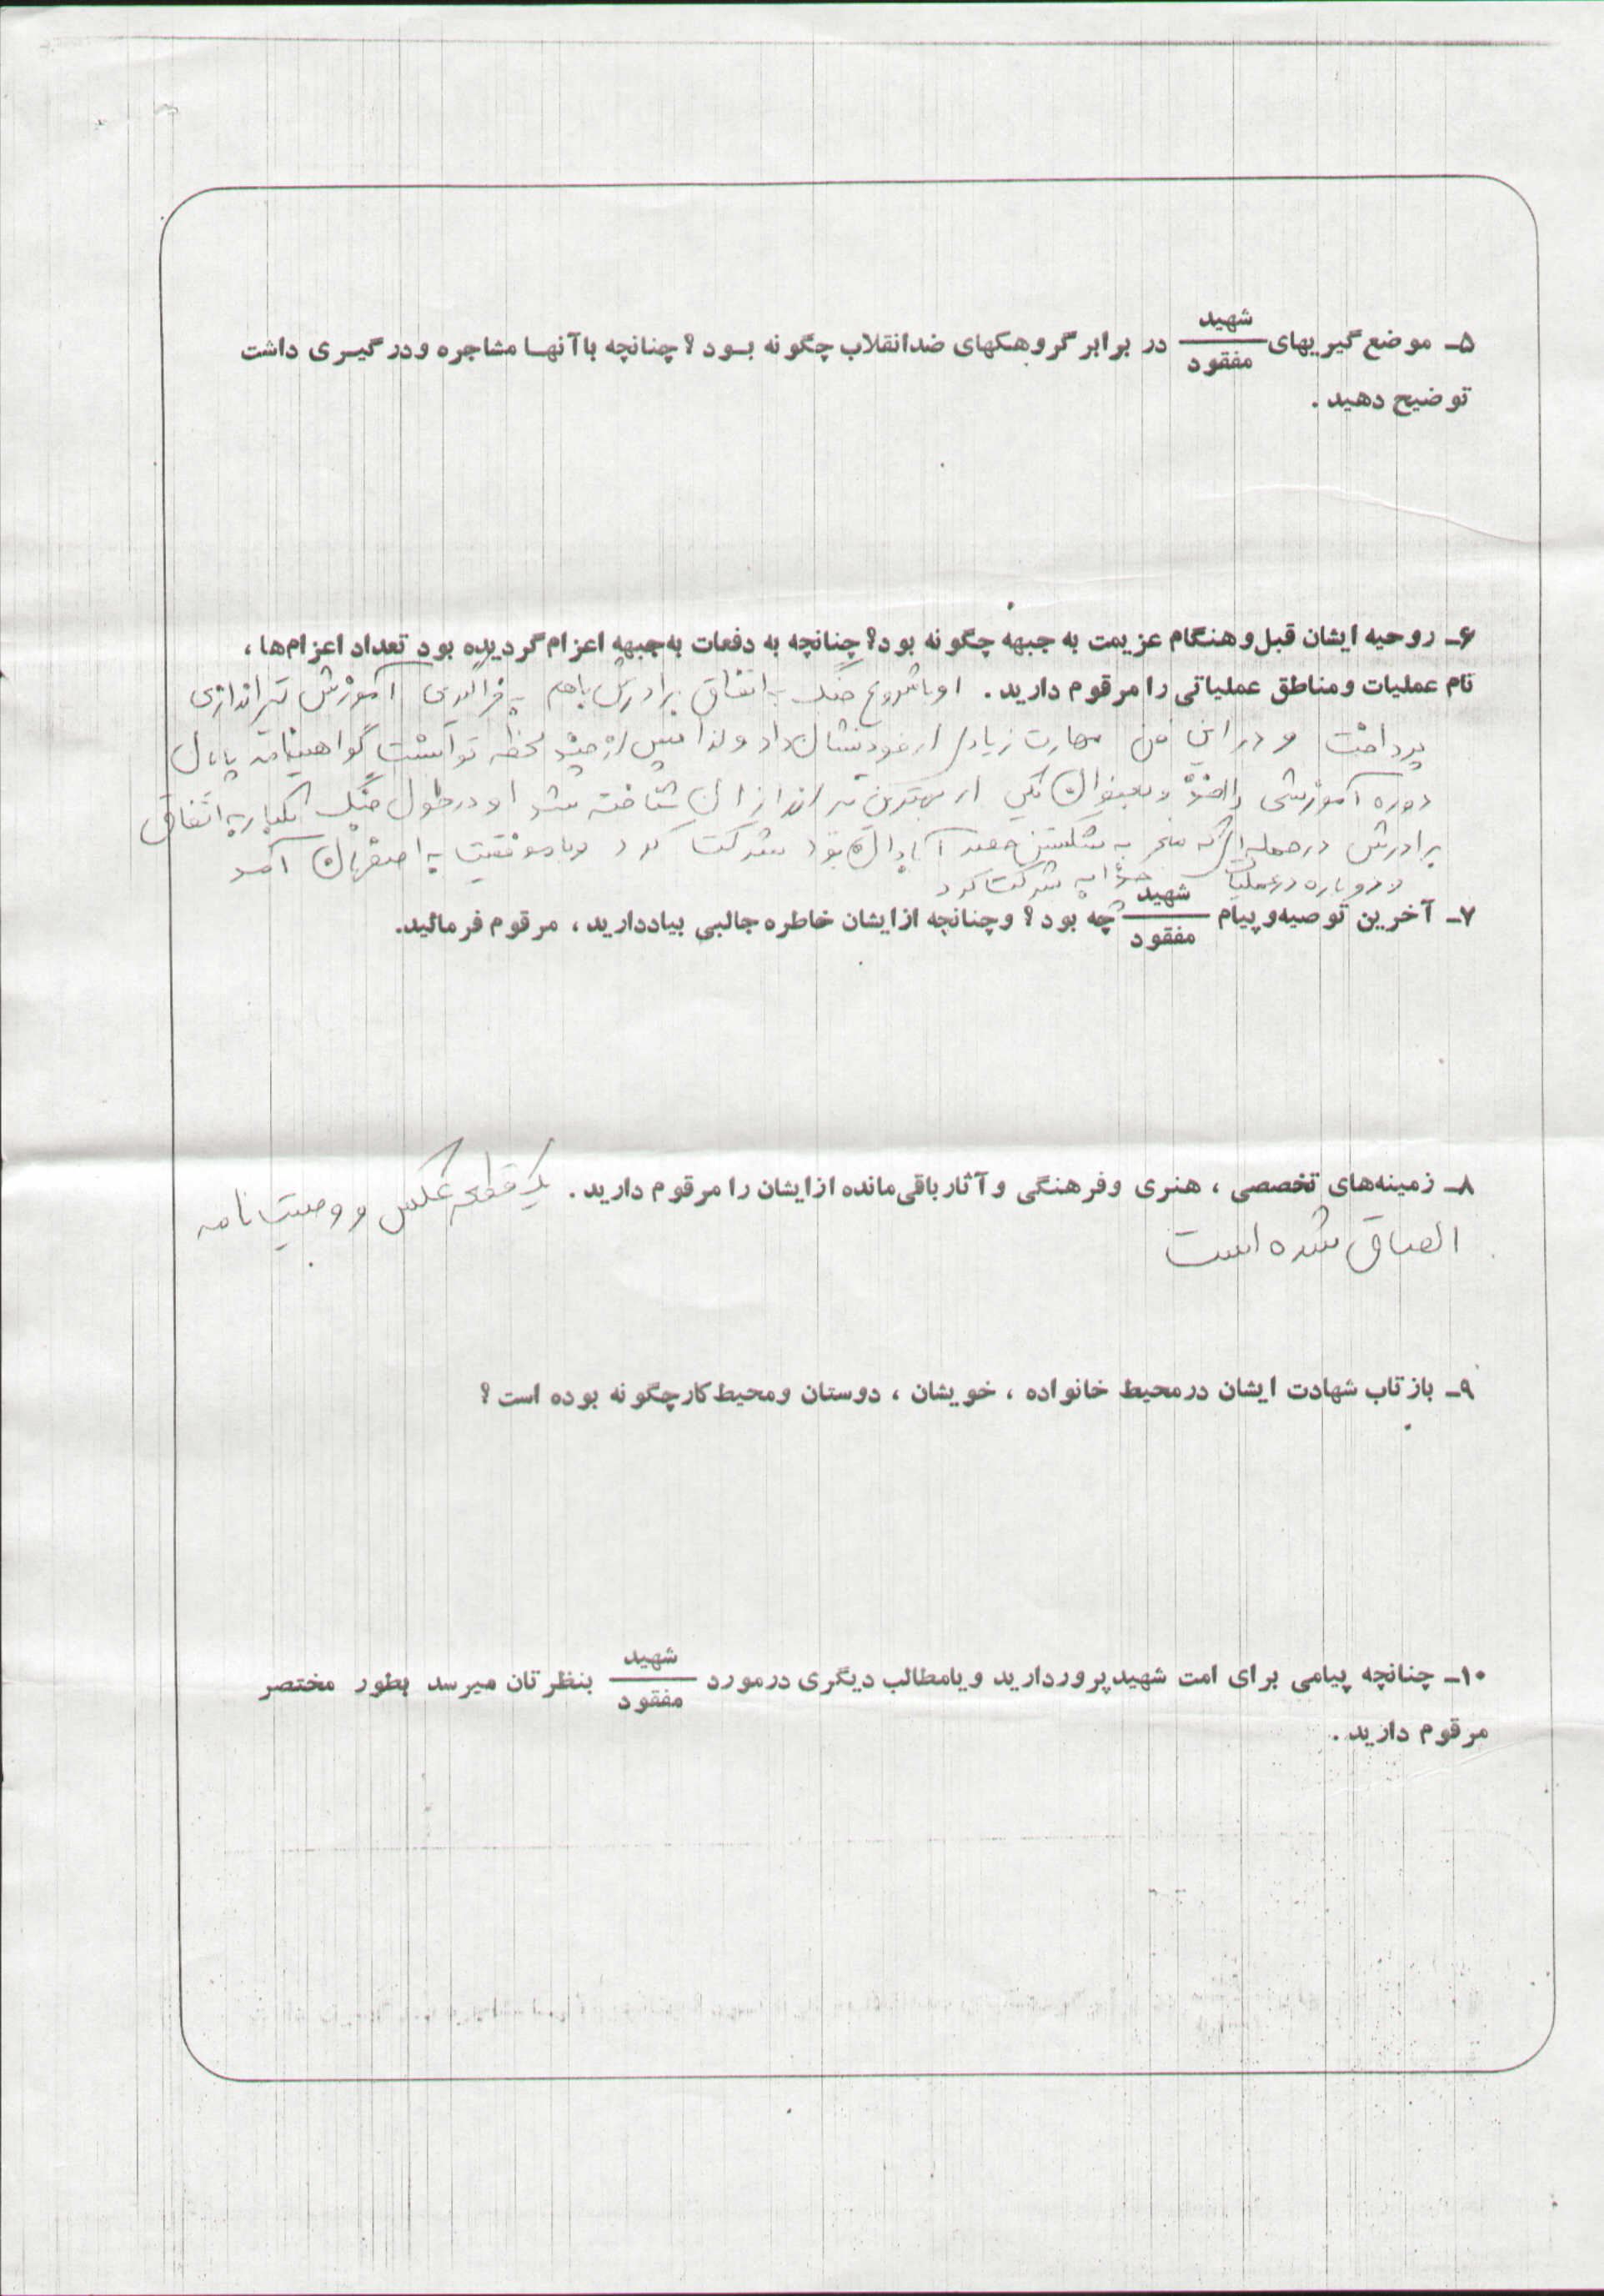 ۵ـ موضع گیریهای شهید / مفقود در برابر گروهکهای ضدانقلاب چگونه بود؟ چنانچه باآنها مشاجره ودرگیری داشت
توضیح دهید .
۶ـ روحیه ایشان قبل وهنگام عزیمت به جبهه چگونه بود؟ چنانچه به دفعات به جبهه اعزام گردیده بود تعداد اعزام‌ها ،
نام عملیات ومناطق عملیاتی را مرقوم دارید . او با شروع جنگ به اتفاق برادرش باهم به فراگیری آموزش تیراندازی
پرداخت و در این فن مهارت زیادی از خود نشان داد و لذا پس از چند لحظه توانست گواهینامه پایان
دوره آموزشی را اخذ و بعنوان یکی از بهترین تیراندازان شناخته شد او در طول جنگ یکبار به اتفاق
برادرش در حمله‌ای که منجر به شکستن حصر آبادان بود شرکت کرد و با موفقیت به اصفهان آمد
و دوباره در عملیات شرکت کرد
۷ـ آخرین توصیه وپیام شهید / مفقود چه بود؟ وچنانچه ازایشان خاطره جالبی بیاددارید ، مرقوم فرمائید.
۸ـ زمینه‌های تخصصی ، هنری وفرهنگی وآثارباقی‌مانده ازایشان را مرقوم دارید . یک قطعه عکس و وصیت نامه
الصاق شده است
۹ـ بازتاب شهادت ایشان درمحیط خانواده ، خویشان ، دوستان ومحیط کارچگونه بوده است؟
۱۰ـ چنانچه پیامی برای امت شهیدپروردارید ویامطالب دیگری درمورد شهید / مفقود بنظرتان میرسد بطور مختصر
مرقوم دارید .